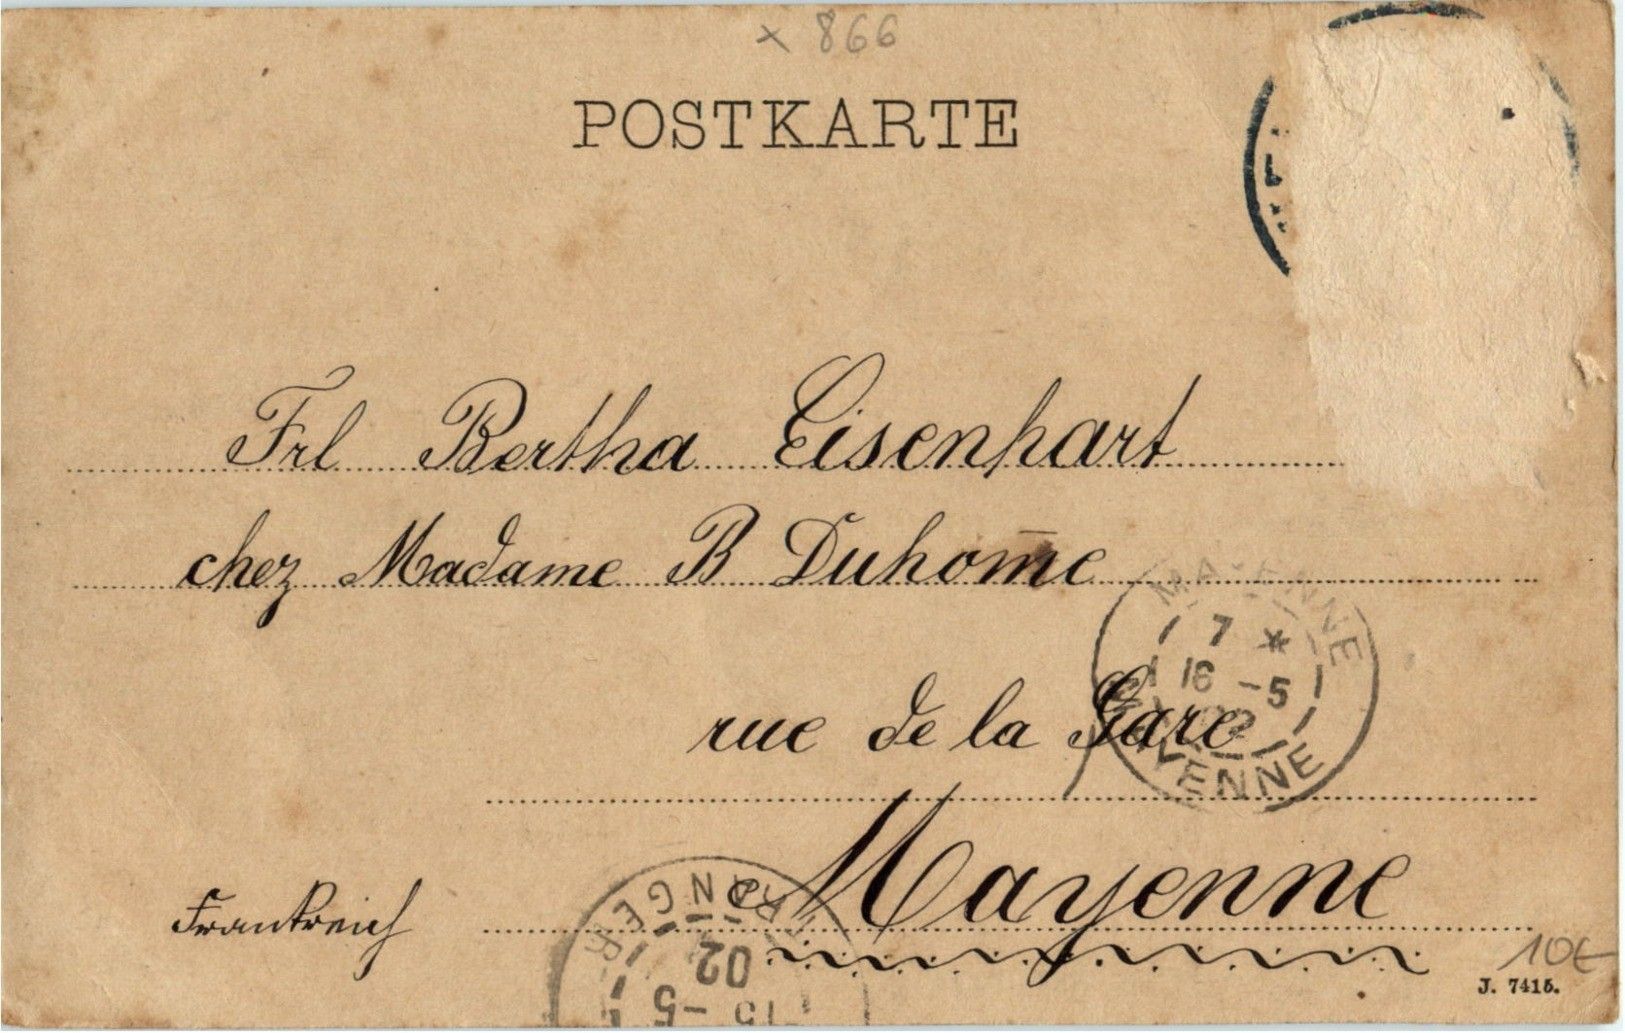 × 866
POSTKARTE
Frl Bertha Eisenhart
chez Madame B Duhom̄e
MAYENNE
7 *
16 -5
02
MAYENNE
rue de la Gare
Mayenne
Frankreich
ETRANGER
02
15 -5
10€
J. 7415.